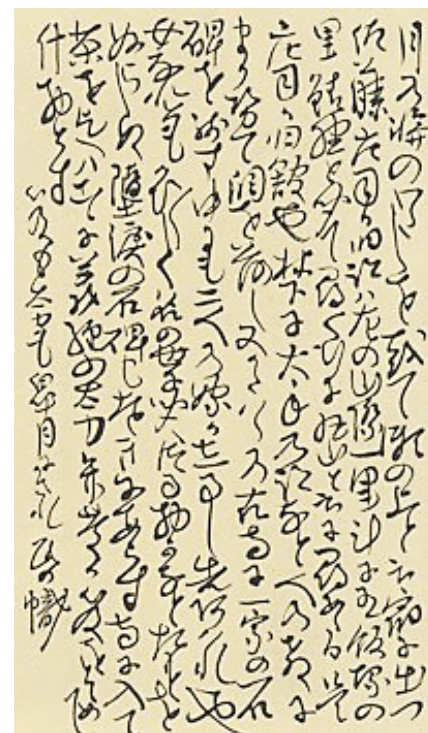 月の輪のわたしを越て瀬の上と云宿に出つ
佐藤庄司か旧跡ハ左の山際一里半計に有飯塚の
里鯖野と聞て尋〱行に丸山と云に尋あたる是
庄司か旧館也梺に大手の跡なと人の教るに
まかせて泪を落し又かたハらの古寺に一家の石
碑を残す中にも二人の嫁かしるし先哀れ也
女なれともかひ〲しき名の世に聞えつる物かなと袂を
ぬらしぬ墜涙の石碑も遠きにあらす寺に入て
茶を乞へハこゝに義経の太刀弁慶か笈をとゝめて
什物とす
笈も太刀も五月にかされ帋幟